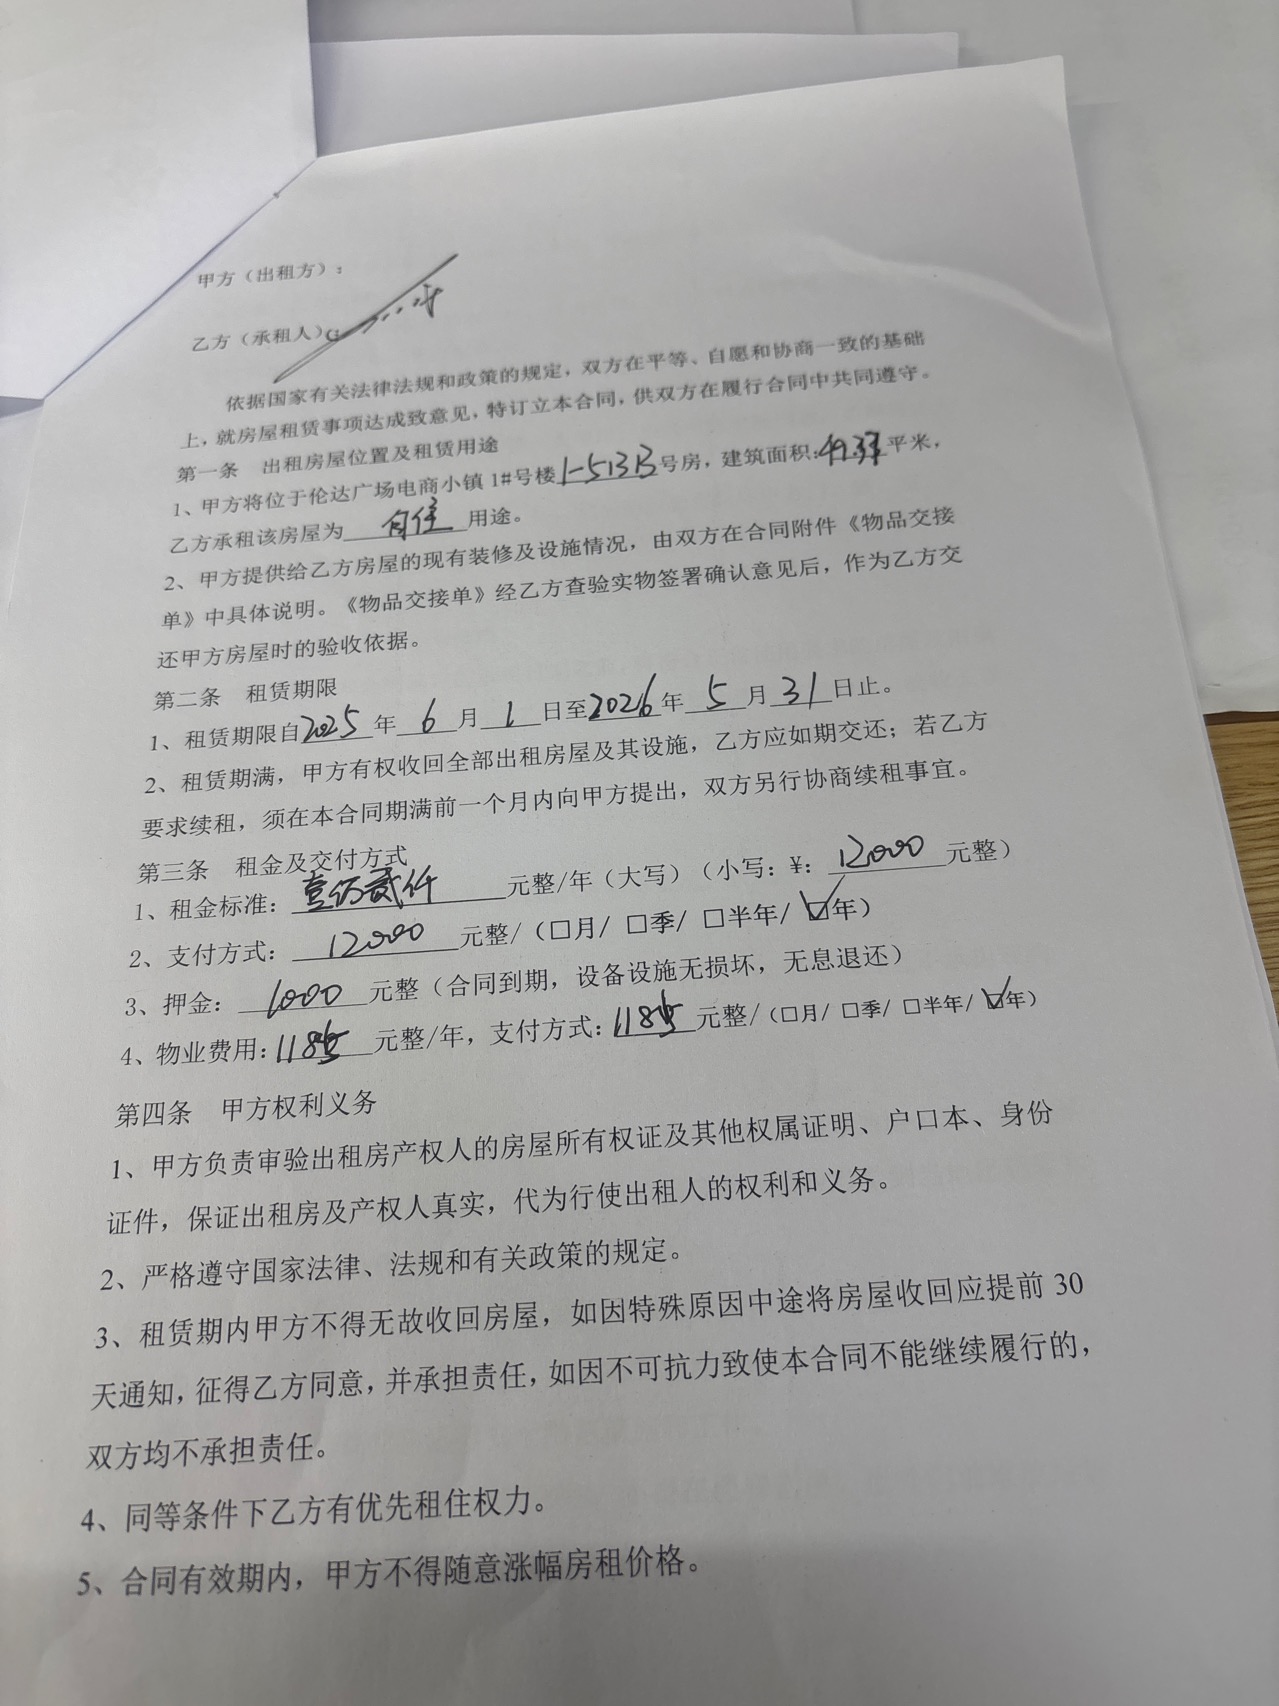 甲方（出租方）：
乙方（承租人）
依据国家有关法律法规和政策的规定，双方在平等、自愿和协商一致的基础
上，就房屋租赁事项达成致意见，特订立本合同，供双方在履行合同中共同遵守。
第一条 出租房屋位置及租赁用途
1、甲方将位于伦达广场电商小镇1#号楼1-513B号房，建筑面积:平米，
乙方承租该房屋为自住用途。
2、甲方提供给乙方房屋的现有装修及设施情况，由双方在合同附件《物品交接
单》中具体说明。《物品交接单》经乙方查验实物签署确认意见后，作为乙方交
还甲方房屋时的验收依据。
第二条 租赁期限
1、租赁期限自2025年6月1日至2026年5月31日止。
2、租赁期满，甲方有权收回全部出租房屋及其设施，乙方应如期交还；若乙方
要求续租，须在本合同期满前一个月内向甲方提出，双方另行协商续租事宜。
第三条 租金及交付方式
1、租金标准：壹万贰仟元整/年（大写）（小写：¥：12000元整）
2、支付方式：12000元整/（□月/ □季/ □半年/ ☑年）
3、押金：1000元整（合同到期，设备设施无损坏，无息退还）
4、物业费用:118元整/年，支付方式:118元整/（□月/ □季/ □半年/ ☑年）
第四条 甲方权利义务
1、甲方负责审验出租房产权人的房屋所有权证及其他权属证明、户口本、身份
证件，保证出租房及产权人真实，代为行使出租人的权利和义务。
2、严格遵守国家法律、法规和有关政策的规定。
3、租赁期内甲方不得无故收回房屋，如因特殊原因中途将房屋收回应提前 30
天通知，征得乙方同意，并承担责任，如因不可抗力致使本合同不能继续履行的，
双方均不承担责任。
4、同等条件下乙方有优先租住权力。
5、合同有效期内，甲方不得随意涨幅房租价格。